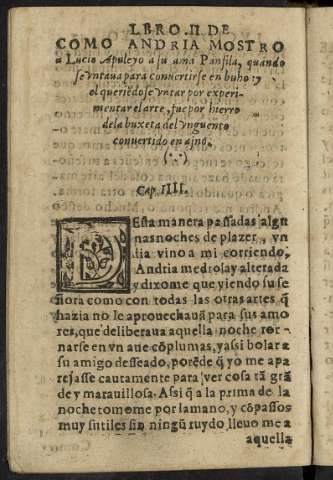 LBRO. II. DE
COMO ANDRIA MOSTRO
a Lucio Apuleyo a su ama Panfila, quando
se vntaua para conuertirse en buho: y
el queriēdose vntar por experi-
mentar el arte, fue por hierro
dela buxeta del vnguento
conuertido en asno.
(∴)
Cap. IIII.
DEsta manera passadas algu
nas noches de plazer, vn
dia vino a mi corriendo,
Andria medrosa y alterada
y dixome que viendo su se
ñora como con todas las otras artes q̄
hazia no le aprouechauā para sus amo
res, que deliberaua aquella noche tor-
narse en vn aue cō plumas, y assi bolar a
su amigo desseado, porēde q̄ yo me apa
rejasse cautamente para ver cosa tā grā
de y marauillosa. Assi q̄ a la prima de la
noche tomome por la mano, y cō passos
muy sutiles sin ningū ruydo, lleuo me a
aquella